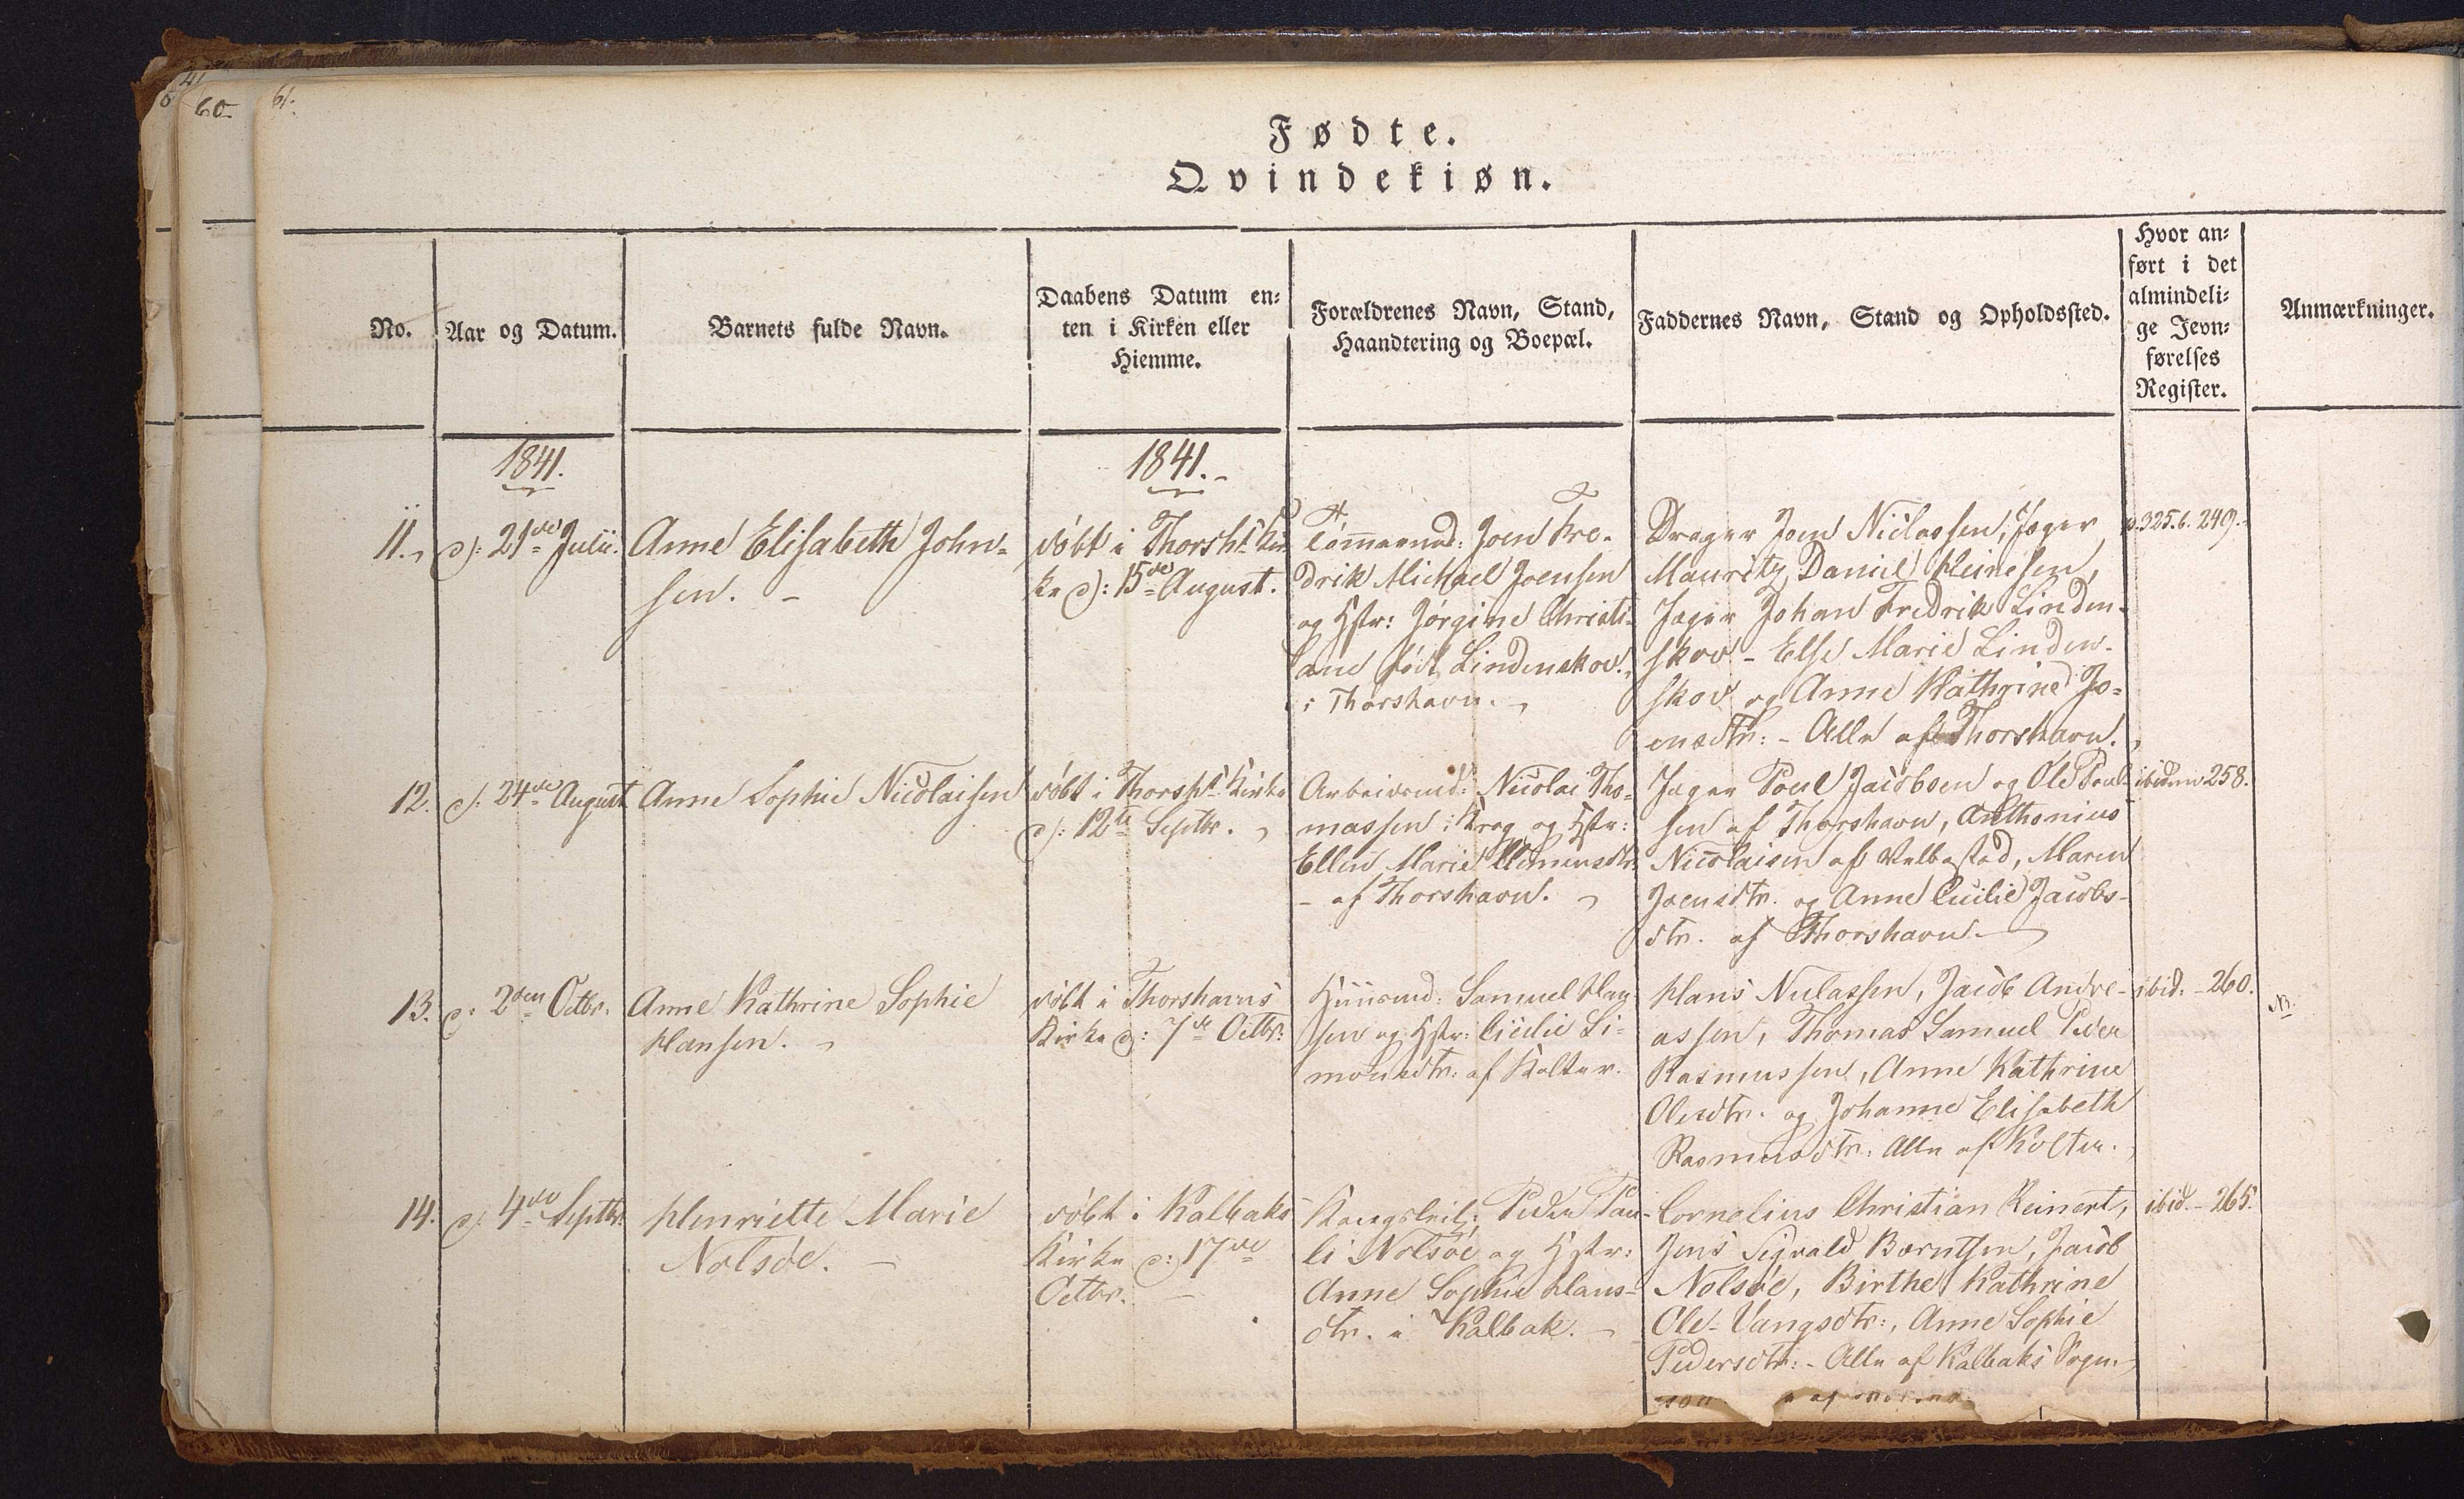 60
61.
Fødte.
Qvindekiøn.
No.
Aar og Datum.
Barnets fulde Navn.
Daabens Datum en-
ten i Kirken eller
Hiemme.
Forældrenes Navn, Stand,
Haandtering og Boepæl.
Faddernes Navn, Stand og Opholdssted.
Hvor an-
ført i det
almindeli-
ge Jevn-
førelses
Register.
Anmærkninger.
1841.
1841.-
11.
d: 21de Julii.
Anne Elisabeth John-
sen. -
døbt i Thorsh: Kir
ke d: 15de August.
Tømmermd: Joen Fre-
drik Michael Joensen
og Hstr: Jørgine Christi-
ane født Lindenskov.
i Thorshavn.
Drager Joen Niclassen, Jæger
Mauritz Daniel Heinesen,
Jæger Johan Fredrik Linden-
skov - Else Marie Linden-
skov og Anne Kathrine Jo-
ensdtr: - Alle af Thorshavn.
p. 325. 6. 249.
12.
d: 24de August
Anne Sophie Nicolaisen
døbt i Thorsh: Kirke
d: 12te Septbr.
Arbeidsmd: Nicolai Tho-
massen i Krog og Hstr:
Ellen Marie Clemensdtr.
- af Thorshavn.
Jæger Poul Jacobsen og Ole Poul-
sen af Thorshavn, Anthonius
Nicolaisen af Velbestad, Maren
Joensdtr. og Anne Cicilie Jacobs-
dtr. af Thorshavn.
ibidem 258.
13.
d: 2den Octbr.
Anne Kathrine Sophie
Hansen.
døbt i Thorshavns
Kirke d: 7de Octbr.
Huusmd: Samuel Han
sen og Hstr: Cicilie Si-
monsdtr: af Kolter.
Hans Niclassen, Jacob Andre-
assen, Thomas Samuel Peder
Rasmussen, Anne Kathrine
Olesdtr. og Johanne Elisabeth
Rasmusdtr. Alle af Kolter.
ibid: - 260.
14.
d: 4de Septbr.
Henriette Marie
Nolsøe. -
døbt i Kalbaks
Kirke d: 17de
Octbr. -
Kongsleil: Peder Pau-
li Nolsøe og Hstr:
Anne Sophie Hans-
dtr. i Kalbak. -
Cornelius Christian Reinert,
Jens Sigvald Berntsen, Jacob
Nolsøe, Birthe Kathrine
Ole-Vangsdtr:, Anne Sophie
Pedersdtr: - Alle af Kalbaks Sogn.
ibid. - 265.